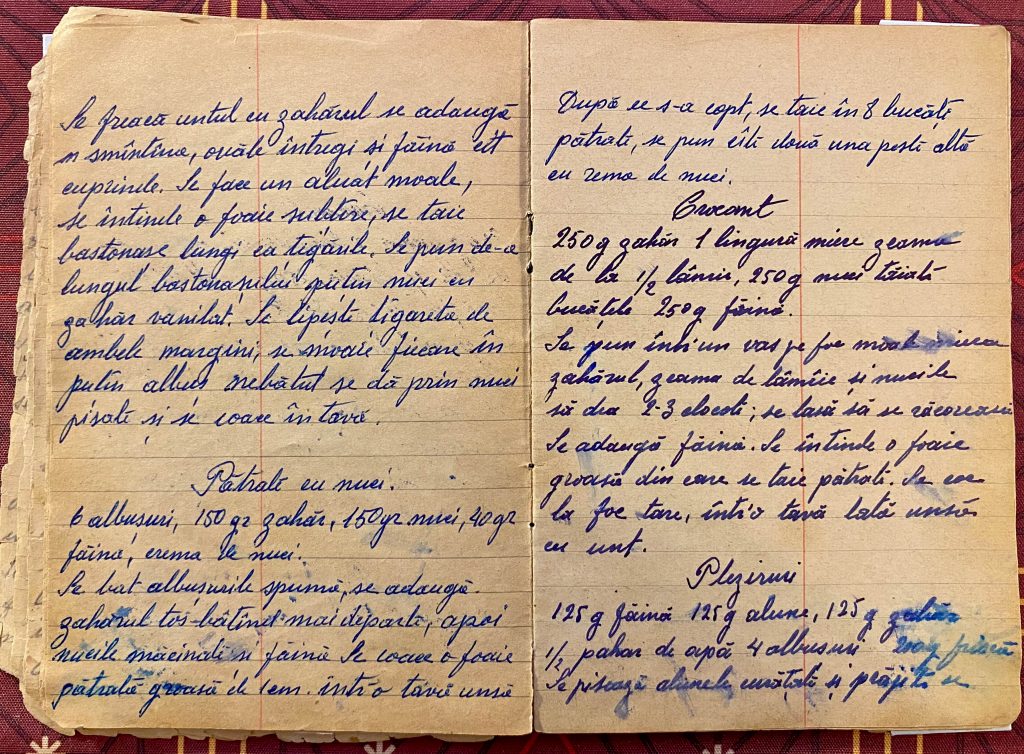 Se freacă untul cu zahărul se adaugă
n smîntîna, ouăle întregi și făină cît
cuprinde. Se face un aluat moale,
se întinde o foaie subtire, se taie
bastonase lungi ca tigările. Se pun de-a
lungul bastonasului putin nuci cu
zahăr vanilat. Se lipeste tigareta de
ambele margini, se moaie fiecare în
putin albus nebătut se dă prin nuci
pisate si se coace în tavă.
Pătrate cu nuci.
6 albusuri, 150 gr zahăr, 150 gr nuci, 40 gr
făină, crema de nuci.
Se bat albusurile spumă, se adaugă
zahărul tos bătînd mai departe, apoi
nucile măcinate si făina Se coace o foaie
pătrată groasă de 1 cm. într'o tavă unsă
După ce s-a copt, se taie în 8 bucăți
pătrate, se pun cîte două una peste altă
cu rema de nuci.
Crocant
250 g zahăr 1 lingură miere zeama
de la 1/2 lămîie, 250 g nuci tăiate
bucățele 250 g făină.
Se pun într'un vas pe foc mierea
zahărul, zeama de lămîie si nucile
să dea 2-3 clocote; se lasă să se răcorească
Se adaugă făina. Se întinde o foaie
groasă din care se taie pătrate. Se coc
la foc tare, într'o tavă lată unsă
cu unt.
Pleziruri
125 g făină 125 g alune, 125 g zahăr
1/2 pahar de apă 4 albusuri 200 g frișcă
Se pisează alunele curătate și prăjite se